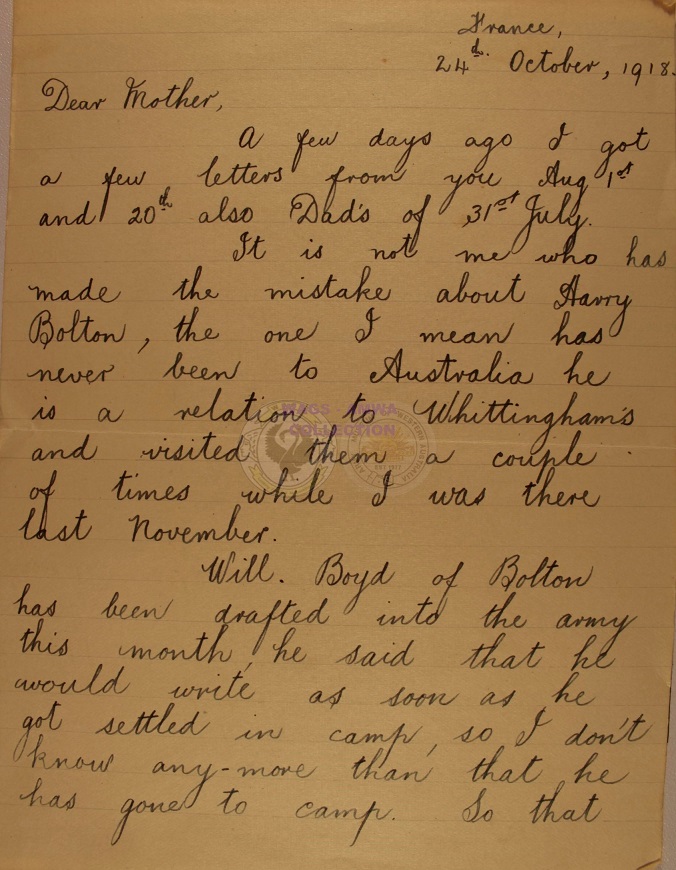 France,
24th. October, 1918.
Dear Mother,
A few days ago I got
a few letters from you Aug 1st
and 20th also Dad's of 31st July.
It is not me who has
made the mistake about Harry
Bolton, the one I mean has
never been to Australia he
is a relation to Whittingham's
and visited them a couple
of times while I was there
last November.
Will. Boyd of Bolton
has been drafted into the army
this month, he said that he
would write as soon as he
got settled in camp, so I don't
know any-more than that he
has gone to camp. So that
COLLECTION